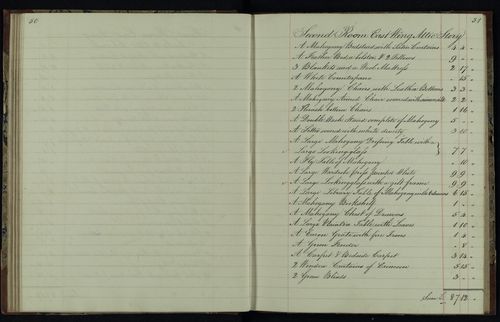 50
51
Second Room East Wing Attic Story
A Mahogany Bedstead with Curtains 4 4 -
A Feather Bed a bolster & 2 Pillows 9 - -
3 Blankets and a Wool Mattress 2 17 -
A White Counterpane - 15 -
2 Mahogany Chairs with Leather Bottoms 3 3 -
A Mahogany Armed Chair 2 2 -
2 Chairs 1 16 -
A Double Wash Stand complete of Mahogany 5 - -
A Settee covered with white dimity 3 10
A Large Mahogany Dressing Table with a
Large Looking glass 7 7 -
A Fly Table of Mahogany - 10
A Large Wardrobe press painted White 9 9 -
A Large Looking glass with a gilt frame 9 9 -
A Large Library Table of Mahogany with 6 15
A Mahogany Bookshelf 1 - -
A Mahogany Chest of Drawers 5 5 -
A Large Table with Leaves 1 10
A Grate with fire Irons 1 5
A Green Fender - 8 -
A Carpet & Bedside Carpet 3 15
2 Window Curtains of 5 15
2 Green Blinds 3 - -
Sum £ 87 13 -